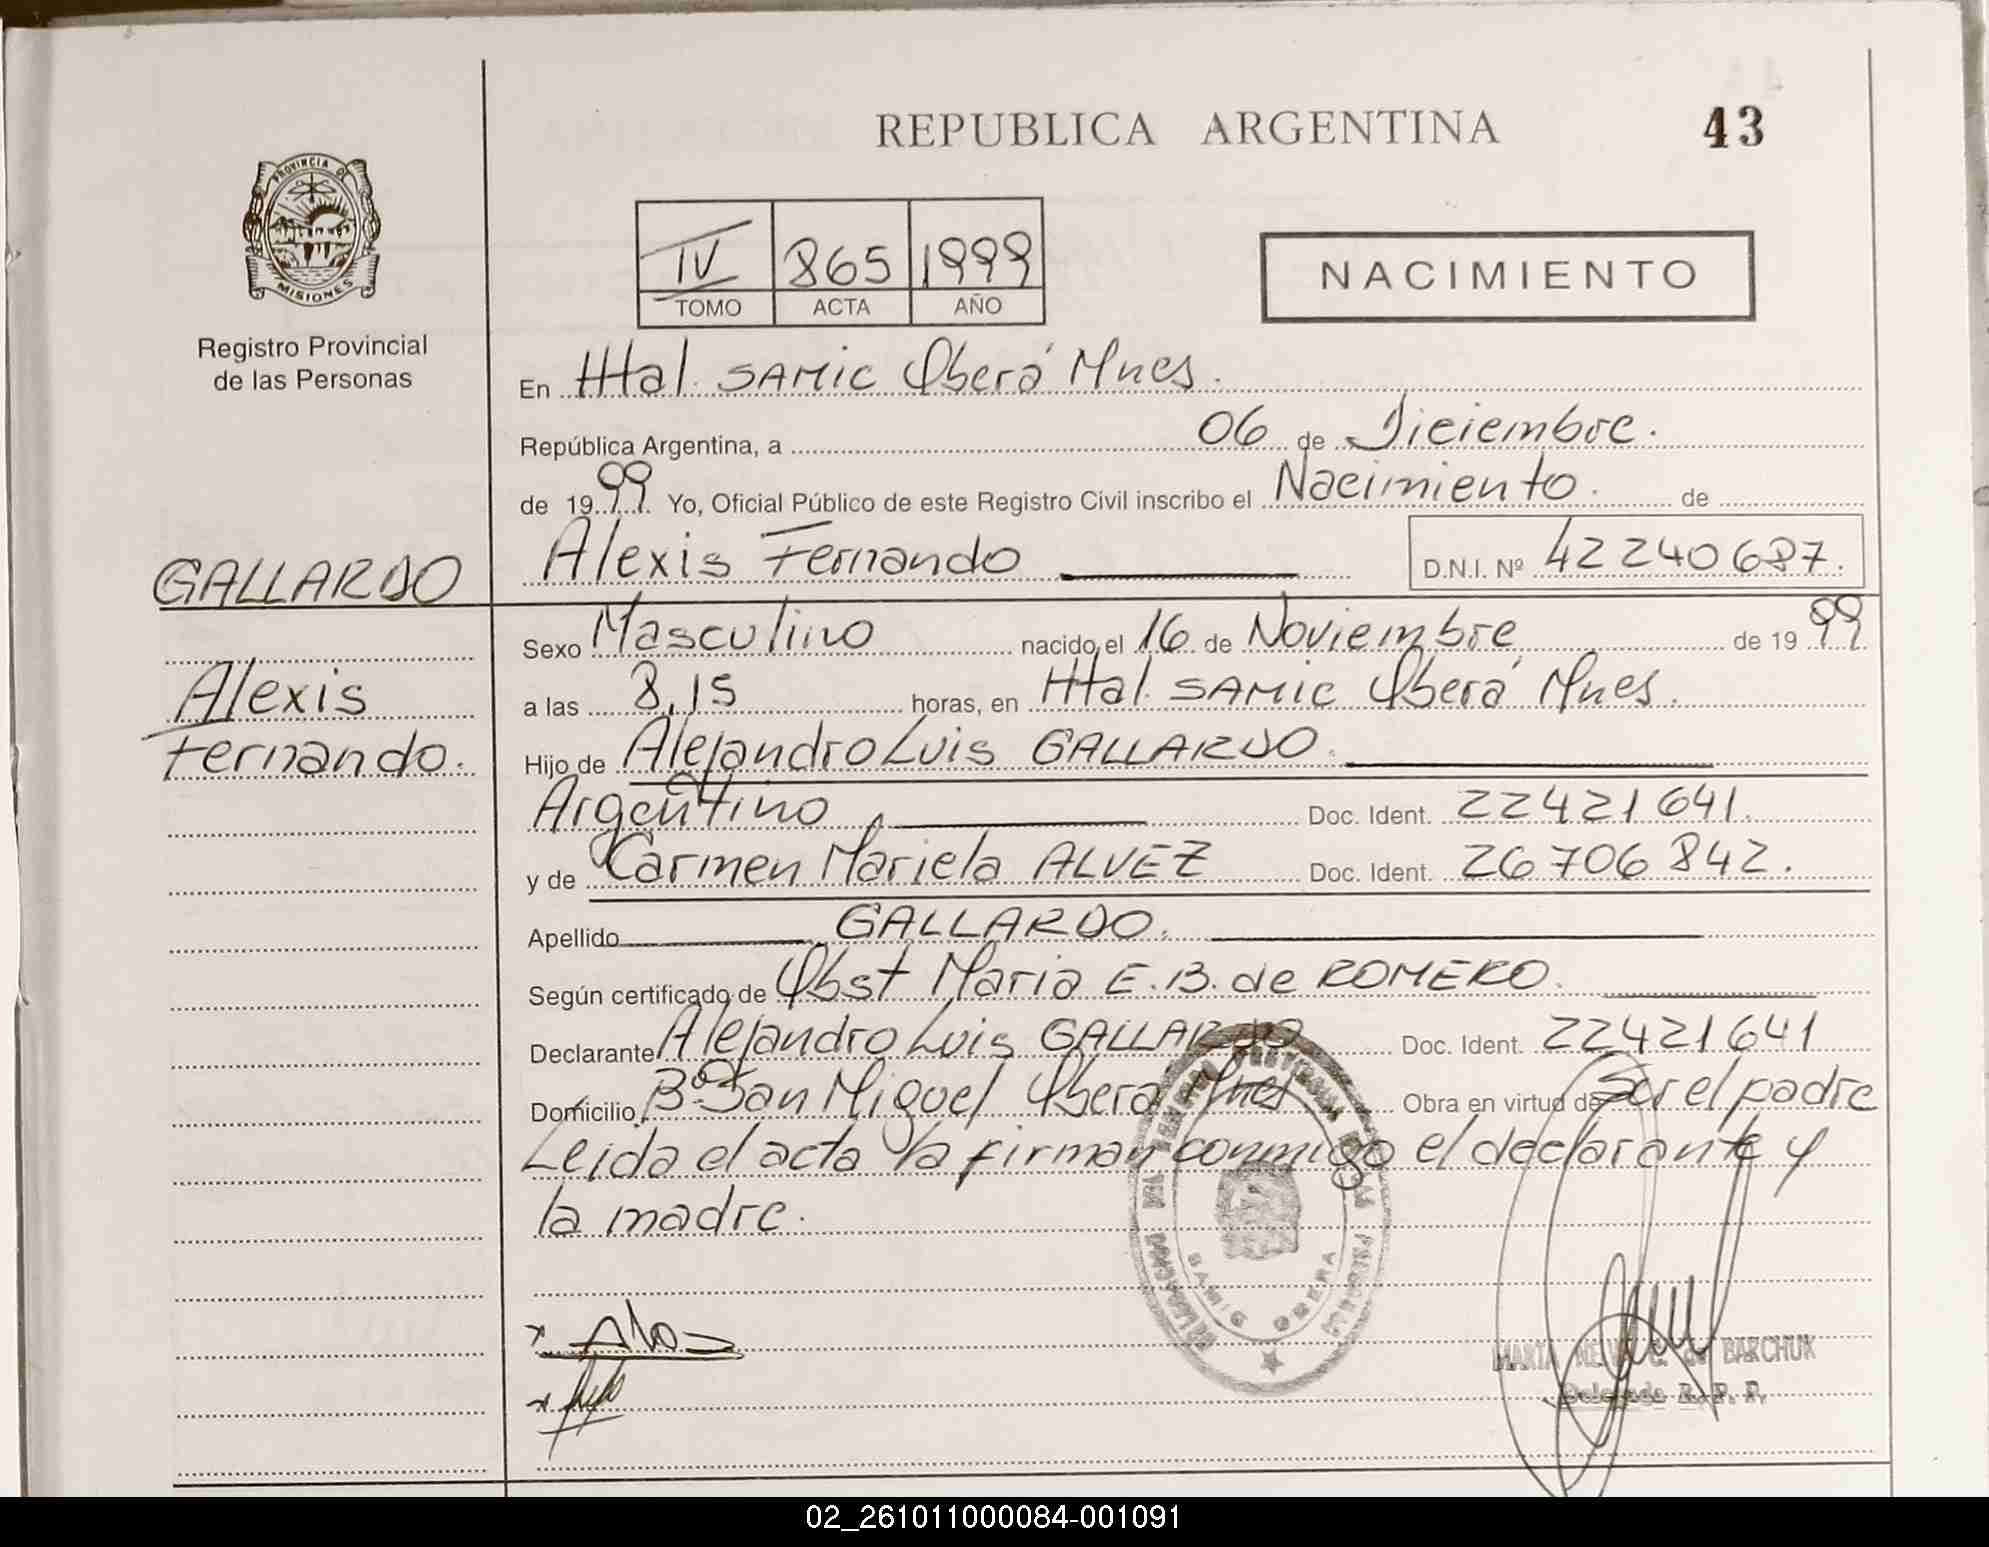 REPUBLICA ARGENTINA
43
PROVINCIA DE
MISIONES
Registro Provincial
de las Personas
IV 865 1999
TOMO ACTA AÑO
NACIMIENTO
En Htal. SAMIC Oberá Mnes.
República Argentina, a 06 de Diciembre.
de 1999 Yo, Oficial Público de este Registro Civil inscribo el Nacimiento. de
Alexis Fernando D.N.I. Nº 42240687.
GALLARDO
Alexis
Fernando.
Sexo Masculino nacido el 16 de Noviembre de 1999
a las 8,15 horas, en Htal. SAMIC Oberá Mnes.
Hijo de Alejandro Luis GALLARDO.
Argentino Doc. Ident. 22421641.
y de Carmen Mariela ALVEZ Doc. Ident. 26706842.
Apellido GALLARDO.
Según certificado de Obst Maria E.B. de ROMERO.
Declarante Alejandro Luis GALLARDO Doc. Ident. 22421641
Domicilio Bº San Miguel Oberá Mnes Obra en virtud de Ser el padre
Leida el acta la firman conmigo el declarante y
la madre.
SAMIC OBERA
MARTA de BARCHUK
Delegada R. P. P.
02_261011000084-001091